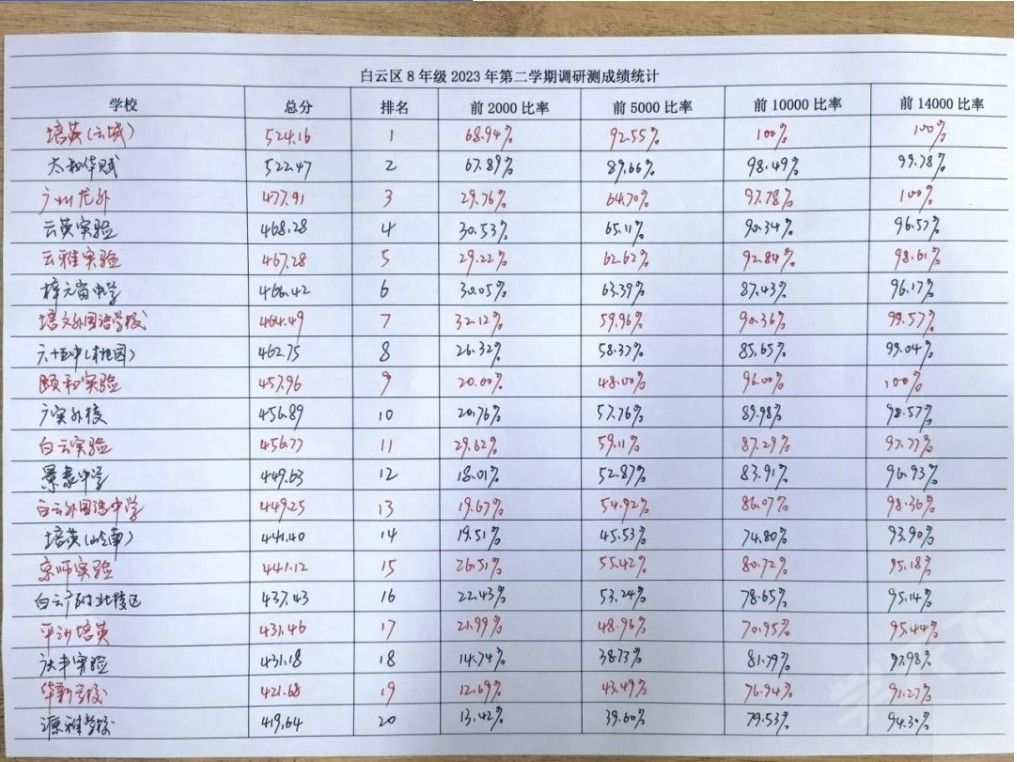 白云区8年级2023年第二学期调研测成绩统计
学校 总分 排名 前2000比率 前5000比率 前10000比率 前14000比率
培英(云城) 524.16 1 68.94% 92.55% 100% 100%
太和华赋 522.47 2 67.89% 89.66% 98.49% 99.78%
广州龙外 477.91 3 29.76% 64.70% 97.78% 100%
云英实验 468.28 4 30.53% 65.11% 90.34% 96.57%
云雅实验 467.28 5 29.22% 62.62% 92.84% 98.61%
梓元岗中学 466.42 6 30.05% 63.39% 87.43% 96.17%
培文外国语学校 464.49 7 32.12% 59.96% 90.36% 99.57%
六十五中(桃园) 462.75 8 26.32% 58.37% 85.65% 99.04%
颐和实验 457.96 9 20.00% 48.00% 96.00% 100%
广实外校 456.89 10 20.76% 57.76% 89.98% 98.57%
白云实验 456.77 11 29.62% 59.11% 87.29% 97.77%
景泰中学 449.63 12 18.01% 52.87% 83.91% 96.93%
白云外国语中学 449.25 13 19.67% 54.92% 86.07% 98.36%
培英(岭南) 441.40 14 19.51% 45.53% 74.80% 93.90%
京师实验 441.12 15 26.51% 55.42% 80.72% 95.18%
白云广附北校区 437.43 16 22.43% 53.24% 78.65% 95.14%
平沙培英 431.46 17 21.99% 48.96% 70.95% 95.44%
实验 431.18 18 14.74% 38.73% 81.79% 97.98%
华新学校 421.68 19 12.69% 43.49% 76.94% 91.27%
源雅学校 419.64 20 13.42% 39.60% 79.53% 94.30%